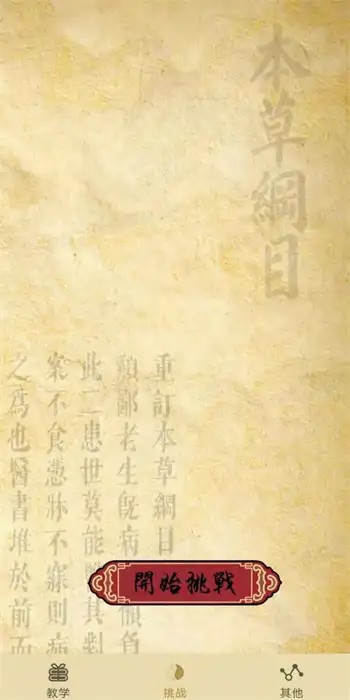 本草綱目
重訂本草綱目
老生旣病
此二患世莫能
案不食憑牀不寐則病
之爲也醫書堆於前而
開始挑戰
教学
挑战
其他